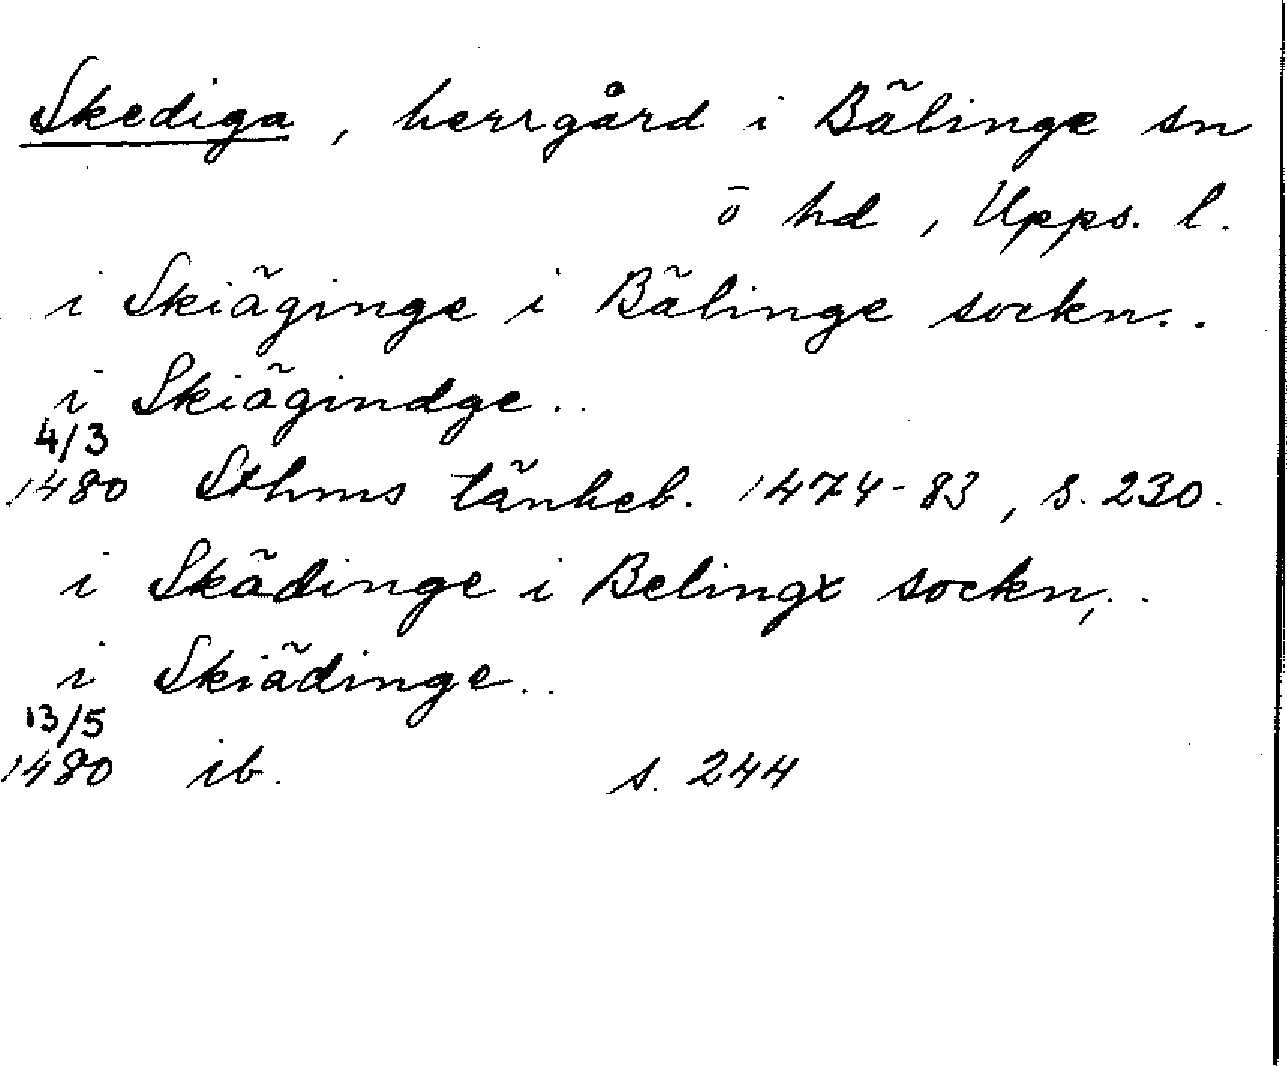 Skediga, herrgård i Bälinge sn
ö hd, Upps. l.
i Skiäginge i Bälinge sockn..
i Skiägindge..
4/3
1480 Sthms tänkeb. 1474-83, s. 230.
i Skädinge i Belinge sockn,..
i Skiädinge..
13/5
1480 ib. s. 244